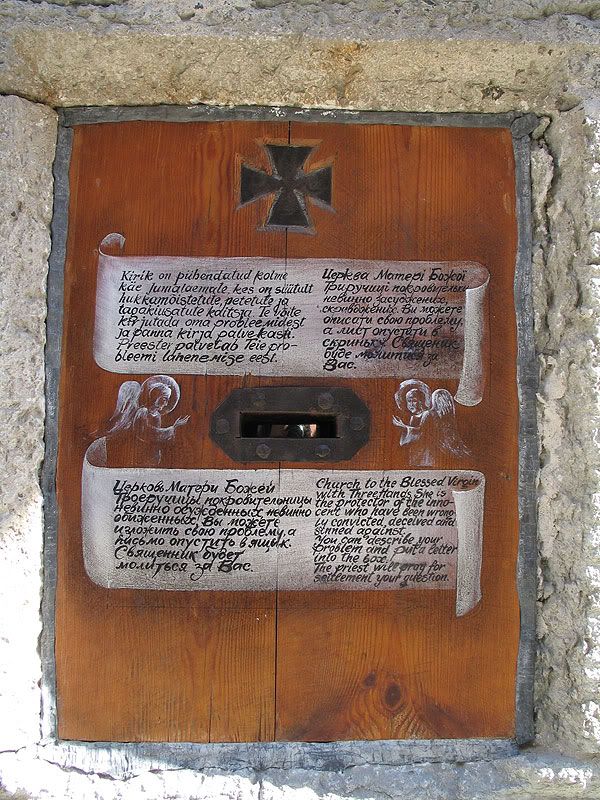 Kirik on pühendatud kolme
käe Jumalaemale, kes on süütult
hukkamõistetute, petetute ja
tagakiusatute kaitsja. Te võite
kirjutada oma probleemidest
ja panna kirja palvekasti.
Preester palvetab Teie pro-
bleemi lahenemise eest.
Церква Матері Божої
Триручиці покровительки
невинно засуджених,
скривджених. Ви можете
описати свою проблему,
а лист опустети в
скриньку. Священик
буде молитися за
Вас.
Церковь Матери Божей
Троеручицы покровительницы
невинно осужденных невинно
обиженных, Вы можете
изложить свою проблему, а
письмо опустить в ящик.
Священник будет
молиться за Вас.
Church to the Blessed Virgin
with Three Hands. She is
the protector of the inno-
cent who have been wrong-
ly convicted, deceived and
sinned against.
You can describe your
problem and put a letter
into the box.
The priest will pray for
settlement your question.